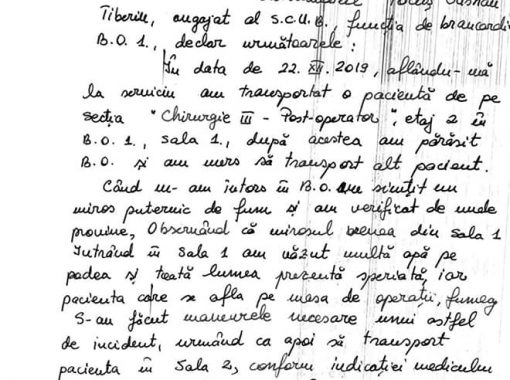 Tiberiu, angajat al S.C.U.B., funcția de brancardi
B.O. 1., declar următoarele:
În data de 22.XII.2019, aflându-mă
la serviciu am transportat o pacientă de pe
secția "Chirurgie III - Post-operator", etaj 2 în
B.O. 1., sala 1., după acestea am părăsit
B.O. și am mers să transport alt pacient.
Când m-am intors în B.O. am simțit un
miros puternic de fum și am verificat de unde
provine, Observând că mirosul venea din sala 1
Intrând în sala 1 am văzut multă apă pe
podea și toată lumea prezentă speriată, iar
pacienta care se afla pe masa de operații, fumeg
S-au făcut manevrele necesare unui astfel
de incident, urmând ca apoi să transport
pacienta în Sala 2, conform indicației medicului